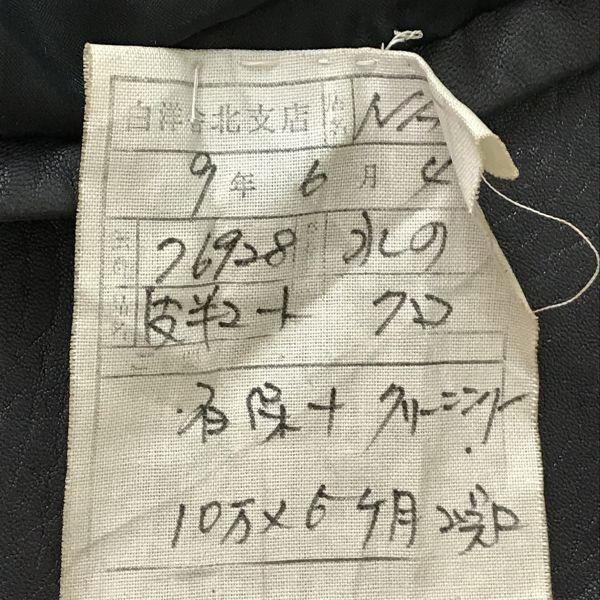 白洋舎北支店
9年 6月 4
76928 水しの
皮半コート クロ
有保+クリーニング
10万×6ヶ月